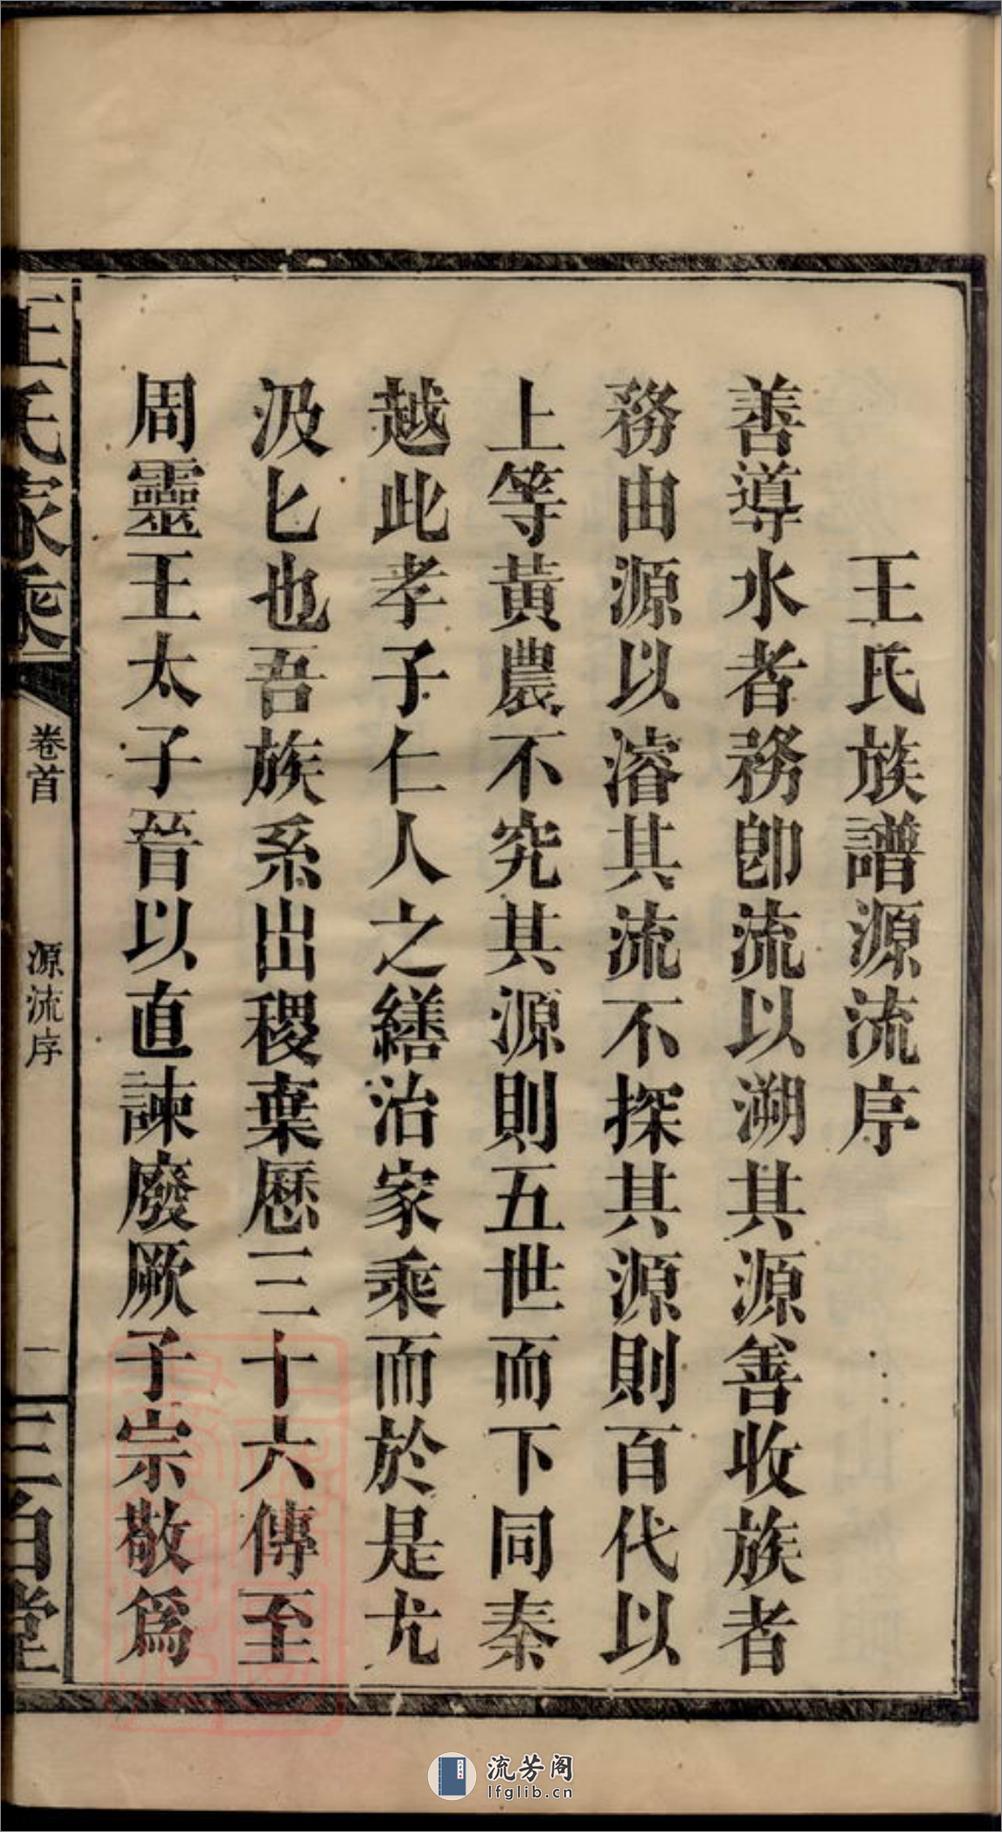 王氏族譜源流序
善導水者務卽流以溯其源善收族者
務由源以濬其流不探其源則百代以
上等黃農不究其源則五世而下同秦
越此孝子仁人之繕治家乘而於是尤
汲匕也吾族系出稷棄歷三十六傳至
周靈王太子晉以直諫廢厥子宗敬爲
王氏家乘
卷首
源流序
一
三白堂
流芳阁
lfglib.cn